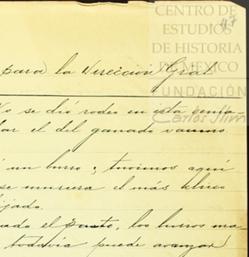 CENTRO DE
ESTUDIOS
DE HISTORIA
DE MÉXICO
FUNDACIÓN
Carlos Slim
para la Dirección Gral
No se dió rodeo en esta
el del ganado vacuno
un burro; tuvimos aquí
se muriera el más
el pasto, los burros
todavía puede avanzar